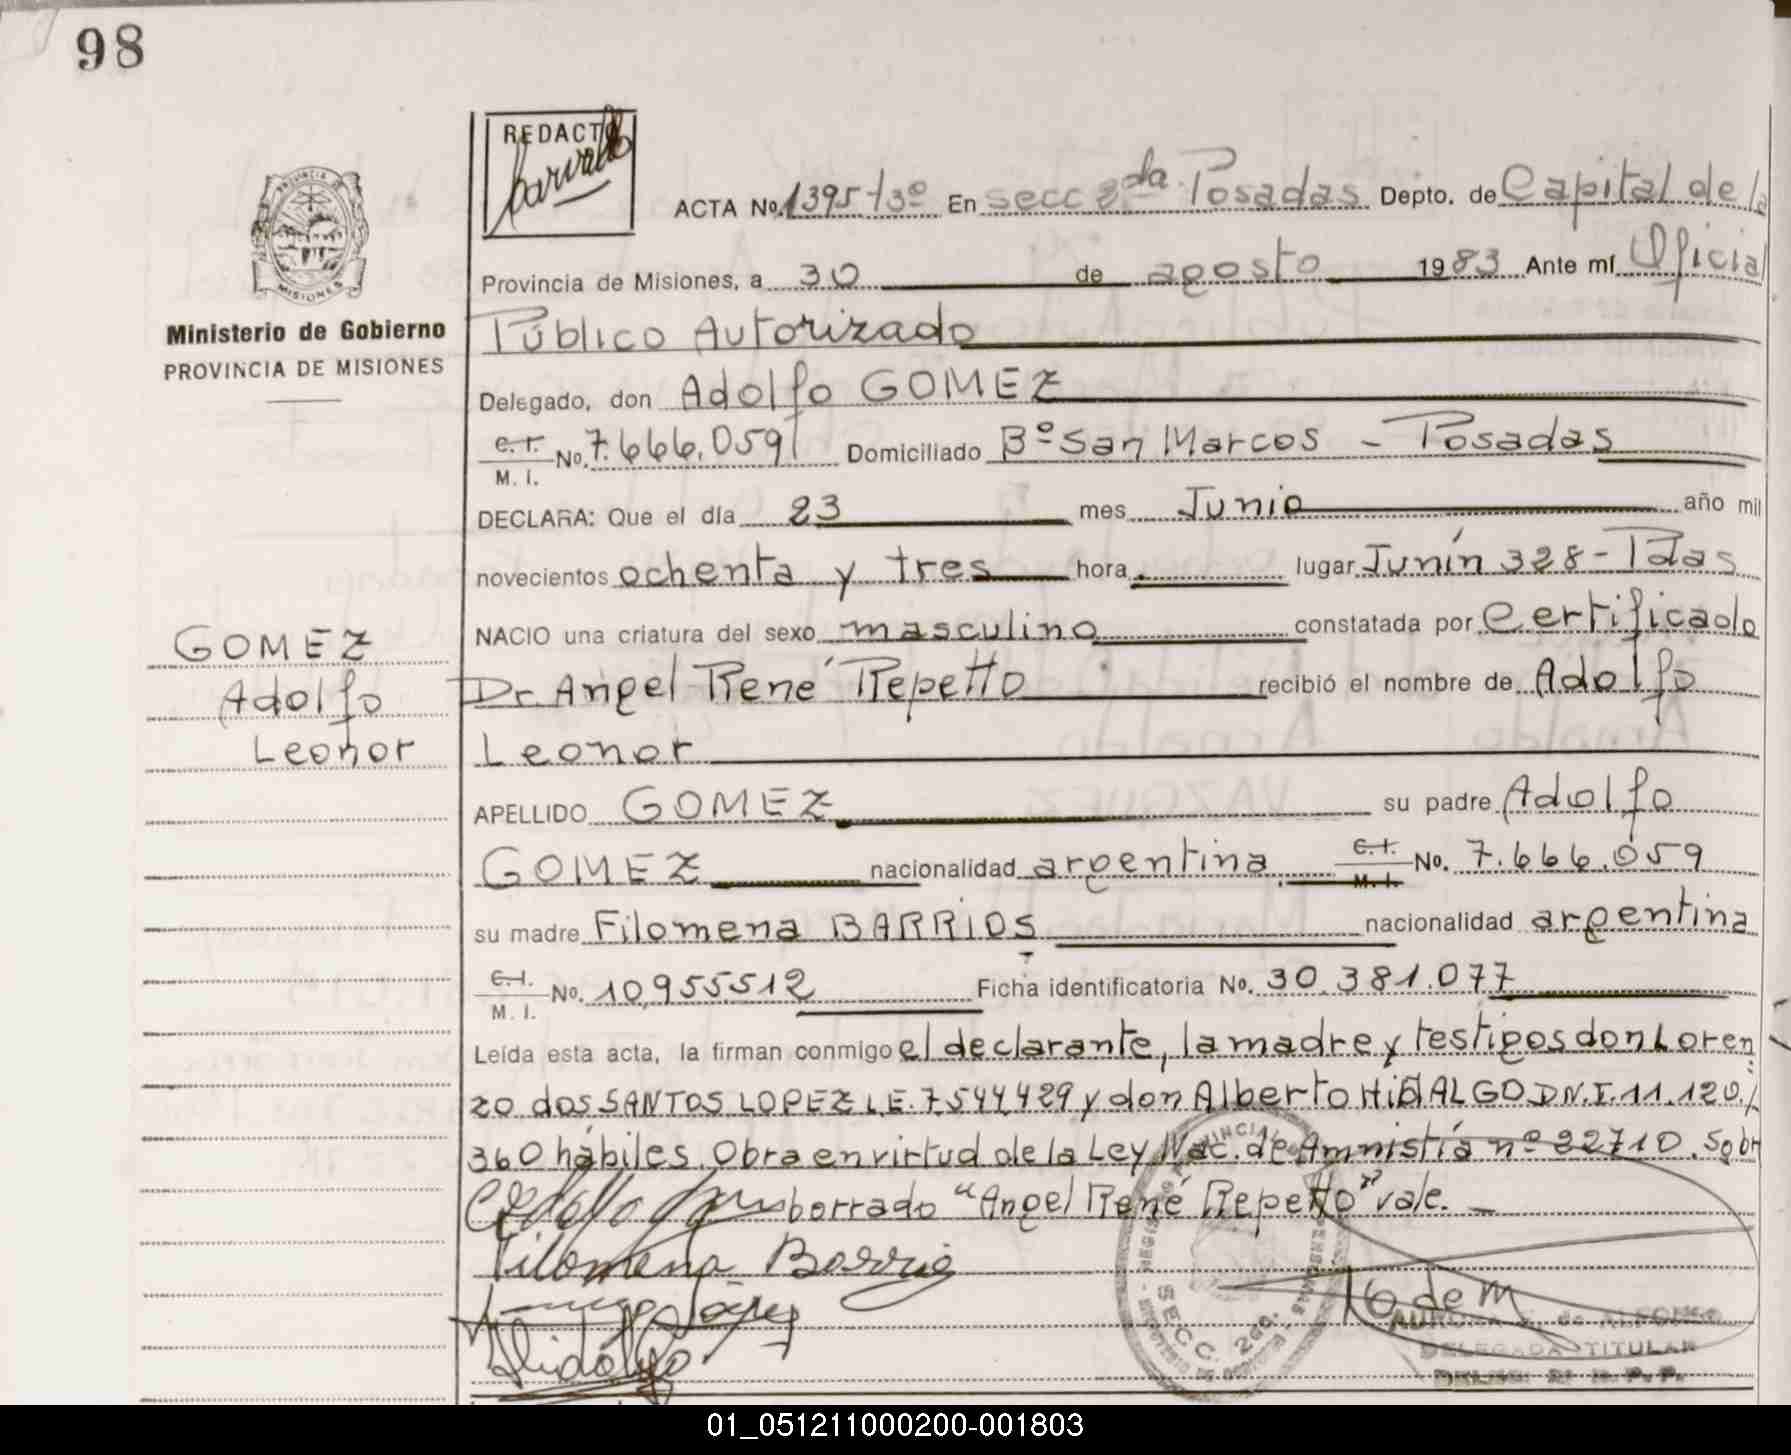 98
REDACTO
ACTA No. 1395-t3º En secc 2da. Posadas Depto. de Capital de la
Provincia de Misiones, a 30 de agosto 1983 Ante mí Oficial
MISIONES
Ministerio de Gobierno
PROVINCIA DE MISIONES
Público Autorizado
Delegado, don Adolfo GOMEZ
C.I. No. 7.666.059 Domiciliado Bº San Marcos - Posadas
M. I.
DECLARA: Que el día 23 mes Junio año mil
novecientos ochenta y tres hora lugar Junín 328 - Pdas
NACIO una criatura del sexo masculino constatada por Certificado
GOMEZ
Adolfo
Leonor
Dr. Angel René Repetto recibió el nombre de Adolfo
Leonor
APELLIDO GOMEZ su padre Adolfo
GOMEZ nacionalidad argentina C.I. No. 7.666.059
M. I.
su madre Filomena BARRIOS nacionalidad argentina
C.I. No. 10.955.512 Ficha identificatoria No. 30.381.077
M. I.
Leída esta acta, la firman conmigo el declarante, la madre y testigos don Loren
zo dos SANTOS LOPEZ L.E. 7.544.429 y don Alberto HIDALGO D.N.I. 11.120./
360 hábiles. Obra en virtud de la Ley Nac. de Amnistía nº 22710. Sobr
borrado "Angel René Repetto" vale. -
Filomena Barrio
Lopez
Hidalgo
SECC. 2da.
AURORA de ALFONSO
DELEGADA TITULAR
01_051211000200-001803